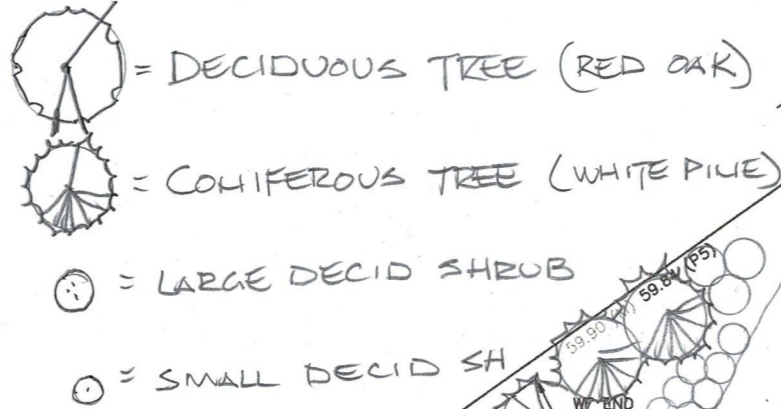 = DECIDUOUS TREE (RED OAK)
= CONIFEROUS TREE (WHITE PINE)
= LARGE DECID SHRUB
= SMALL DECID SH
59.90
(P5)
END